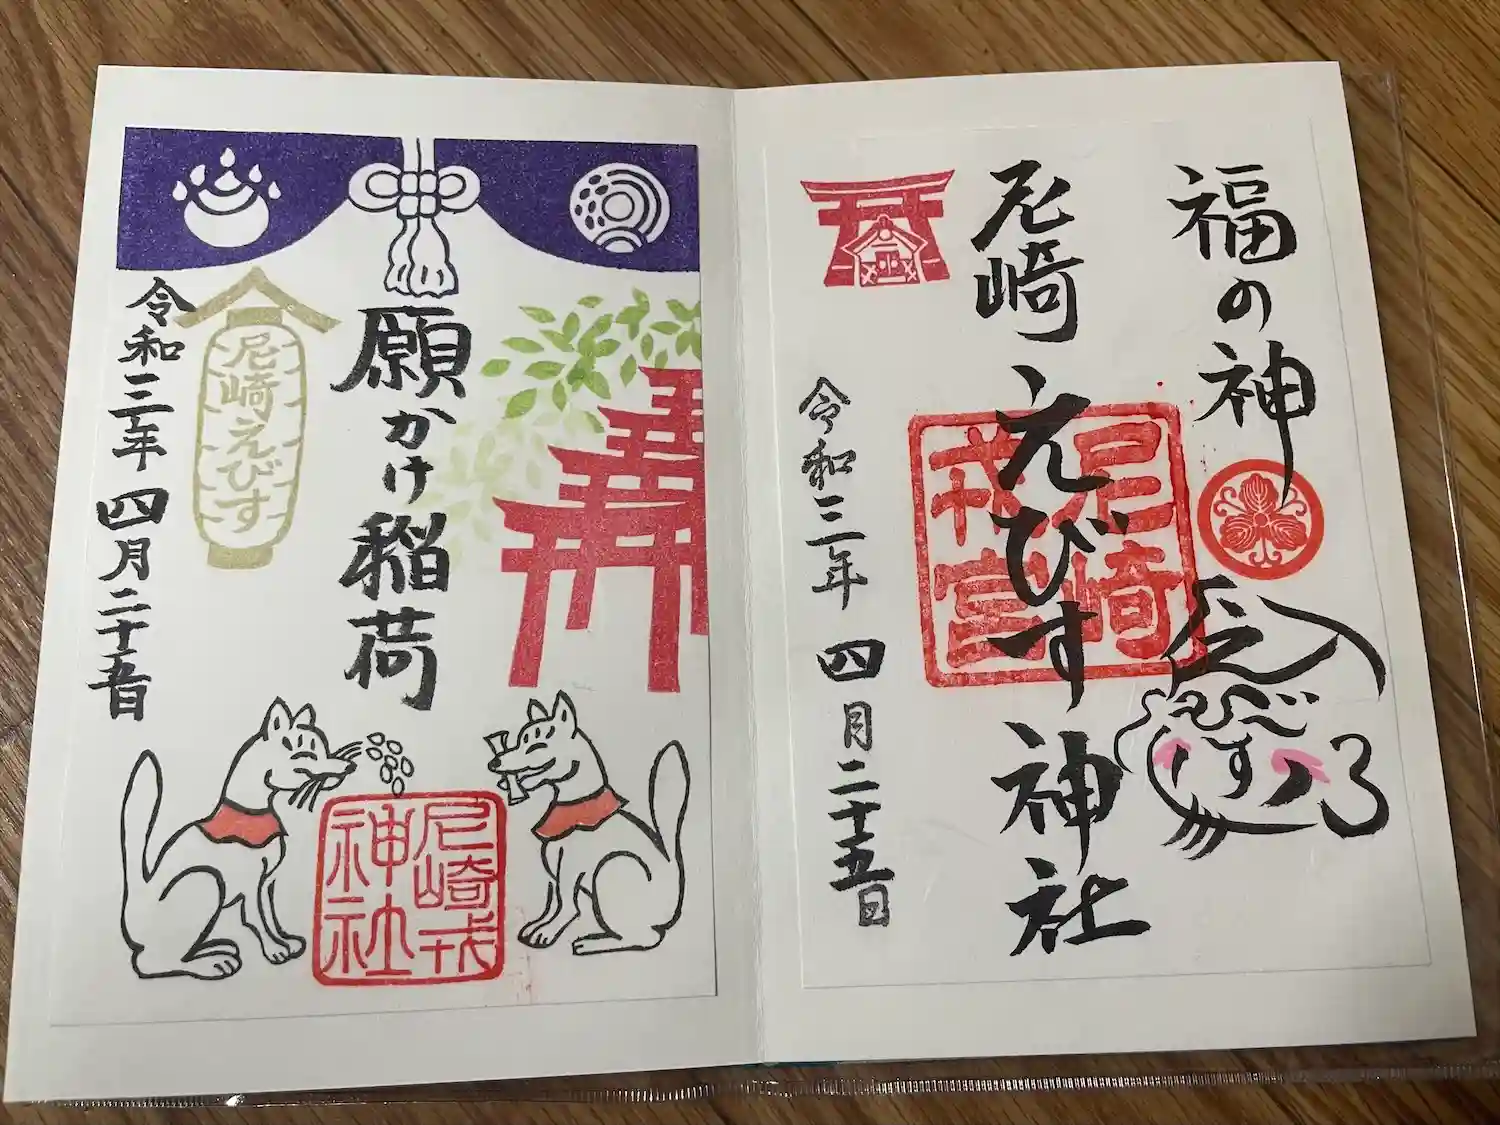 福の神
えびす
尼崎えびす神社
尼崎
戎宮
令和三年 四月二十五日
願かけ稲荷
尼崎戎
神社
尼崎えびす
令和三年 四月二十五日